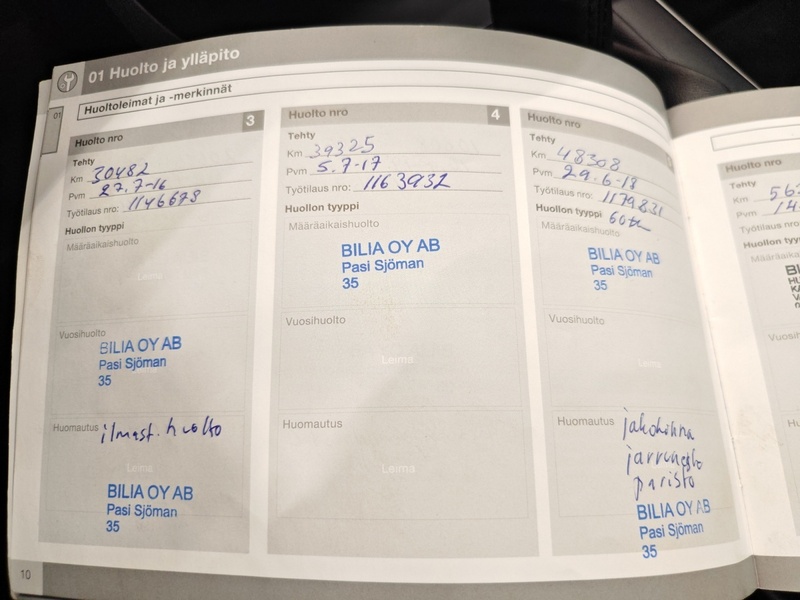 01 Huolto ja ylläpito
01
Huoltoleimat ja -merkinnät
Huolto nro 3
Tehty
Km 30482
Pvm 27.7-16
Työtilaus nro: 1146679
Huollon tyyppi
Määräaikaishuolto
Leima
Vuosihuolto
BILIA OY AB
Pasi Sjöman
35
Huomautus ilmast. huolto
Leima
BILIA OY AB
Pasi Sjöman
35
10
Huolto nro 4
Tehty
Km 39325
Pvm 5.7-17
Työtilaus nro: 1163932
Huollon tyyppi
Määräaikaishuolto
BILIA OY AB
Pasi Sjöman
35
Vuosihuolto
Leima
Huomautus
Leima
Huolto nro
Tehty
Km 48308
Pvm 29.6-18
Työtilaus nro: 1179831
Huollon tyyppi 60
Määräaikaishuolto
BILIA OY AB
Pasi Sjöman
35
Vuosihuolto
Leima
Huomautus jakohihna
jarruneste
paristo
BILIA OY AB
Pasi Sjöman
35
Huolto nro
Tehty
Km
Pvm
Työtilaus nro: